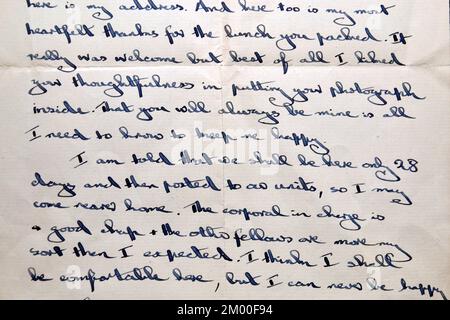 here is my address. And here too is my most
heartfelt thanks for the lunch you packed. It
really was welcome but best of all I liked
your thoughtfulness in putting your photograph
inside. That you will always be mine is all
I need to know to keep me happy
I am told that we shall be here only 28
days and then posted to our units, so I may
come nearer home. The corporal in charge is
a good chap & the other fellows are more my
sort then I expected. I think I shall
be comfortable here, but I can never be happy
alamy
Image ID: 2M00F94
www.alamy.com